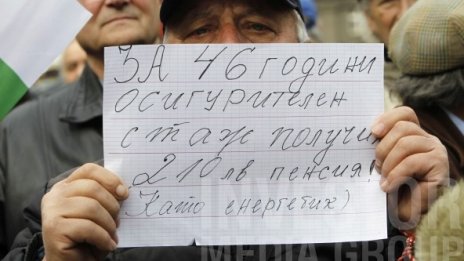 ЗА 46 години
осигурителен
стаж получих
210 лв пенсия!
(Като енергетик)
INVESTOR
MEDIA GROUP